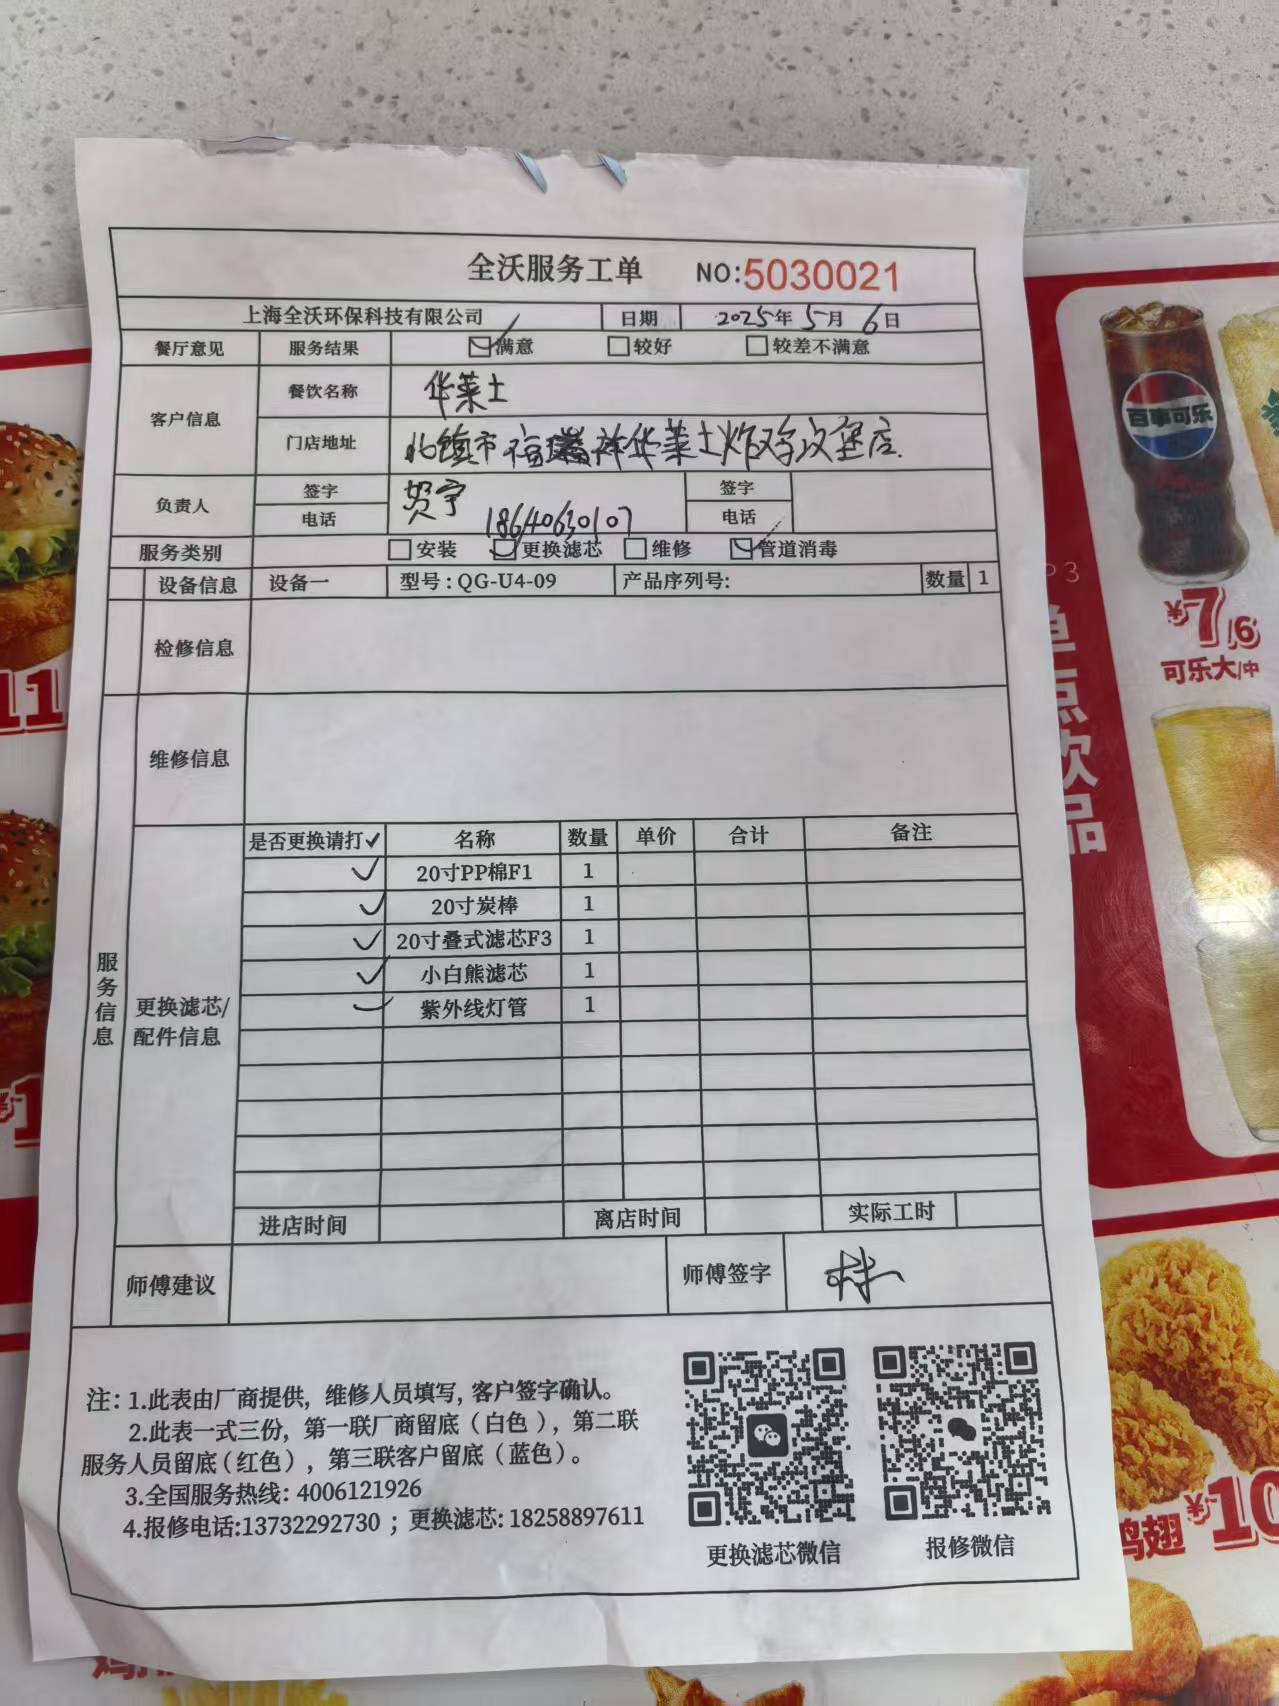 全沃服务工单 NO:5030021
上海全沃环保科技有限公司 日期 2025年5月6日
餐厅意见 服务结果 满意 较好 较差不满意
客户信息 餐饮名称 华莱士
门店地址 北镇市福瑞祥华莱士炸鸡汉堡店.
负责人 签字 贺宇 签字
电话 18640630107 电话
服务类别 安装 更换滤芯 维修 管道消毒
设备信息 设备一 型号:QG-U4-09 产品序列号: 数量 1
检修信息
维修信息
服务信息
更换滤芯/
配件信息
是否更换请打✓ 名称 数量 单价 合计 备注
✓ 20寸PP棉F1 1
✓ 20寸炭棒 1
✓ 20寸叠式滤芯F3 1
✓ 小白熊滤芯 1
✓ 紫外线灯管 1
进店时间 离店时间 实际工时
师傅建议 师傅签字
注:1.此表由厂商提供,维修人员填写,客户签字确认。
2.此表一式三份,第一联厂商留底(白色),第二联
服务人员留底(红色),第三联客户留底(蓝色)。
3.全国服务热线:4006121926
4.报修电话:13732292730;更换滤芯:18258897611
更换滤芯微信 报修微信
百事可乐
¥7/6
可乐大/中
P3
单点饮品
11
¥1
鸡翅 ¥10